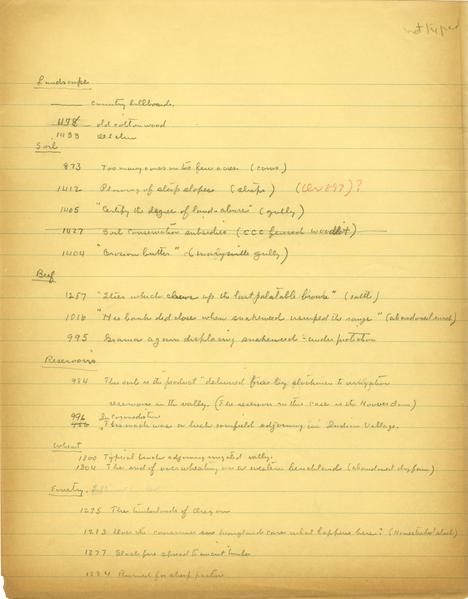 not typed
Landscape
Country billboards.
1178 old cottonwood
1133 old elm
Soil
873 Too many cows on too few acres (cows)
1412 Plowing of steep slopes (strips) (Or 897)?
1405 "Certify the degree of land-abuse" (gully)
1427 Soil Conservation subsidies (CCC fenced woodlot)
1404 "Erosion butter" (gully)
Beef
1257 "Steer which chews up the last palatable browse" (cattle)
1016 "His bank did close when snakeweed usurped the range" (abandoned ranch)
995 Grama again displacing snakeweed under protection
Reservoirs
984 The soil is the product "delivered free by stockmen to irrigation
reservoirs in the valley. (The reservoir in this case is the Hoover dam)
996
This wash was a lush cornfield adjoining an Indian Village.
Wheat
1300 Typical bench adjoining irrigated valley.
1304 The end of overwheating on a western benchlands (abandoned dry farm)
Forestry
1275 The hinterlands of Oregon
1283 Does the consumer in care what happens here? (Homesteader slash)
1277 Slash fire spread to uncut timber
1284 Burned for sheep pasture